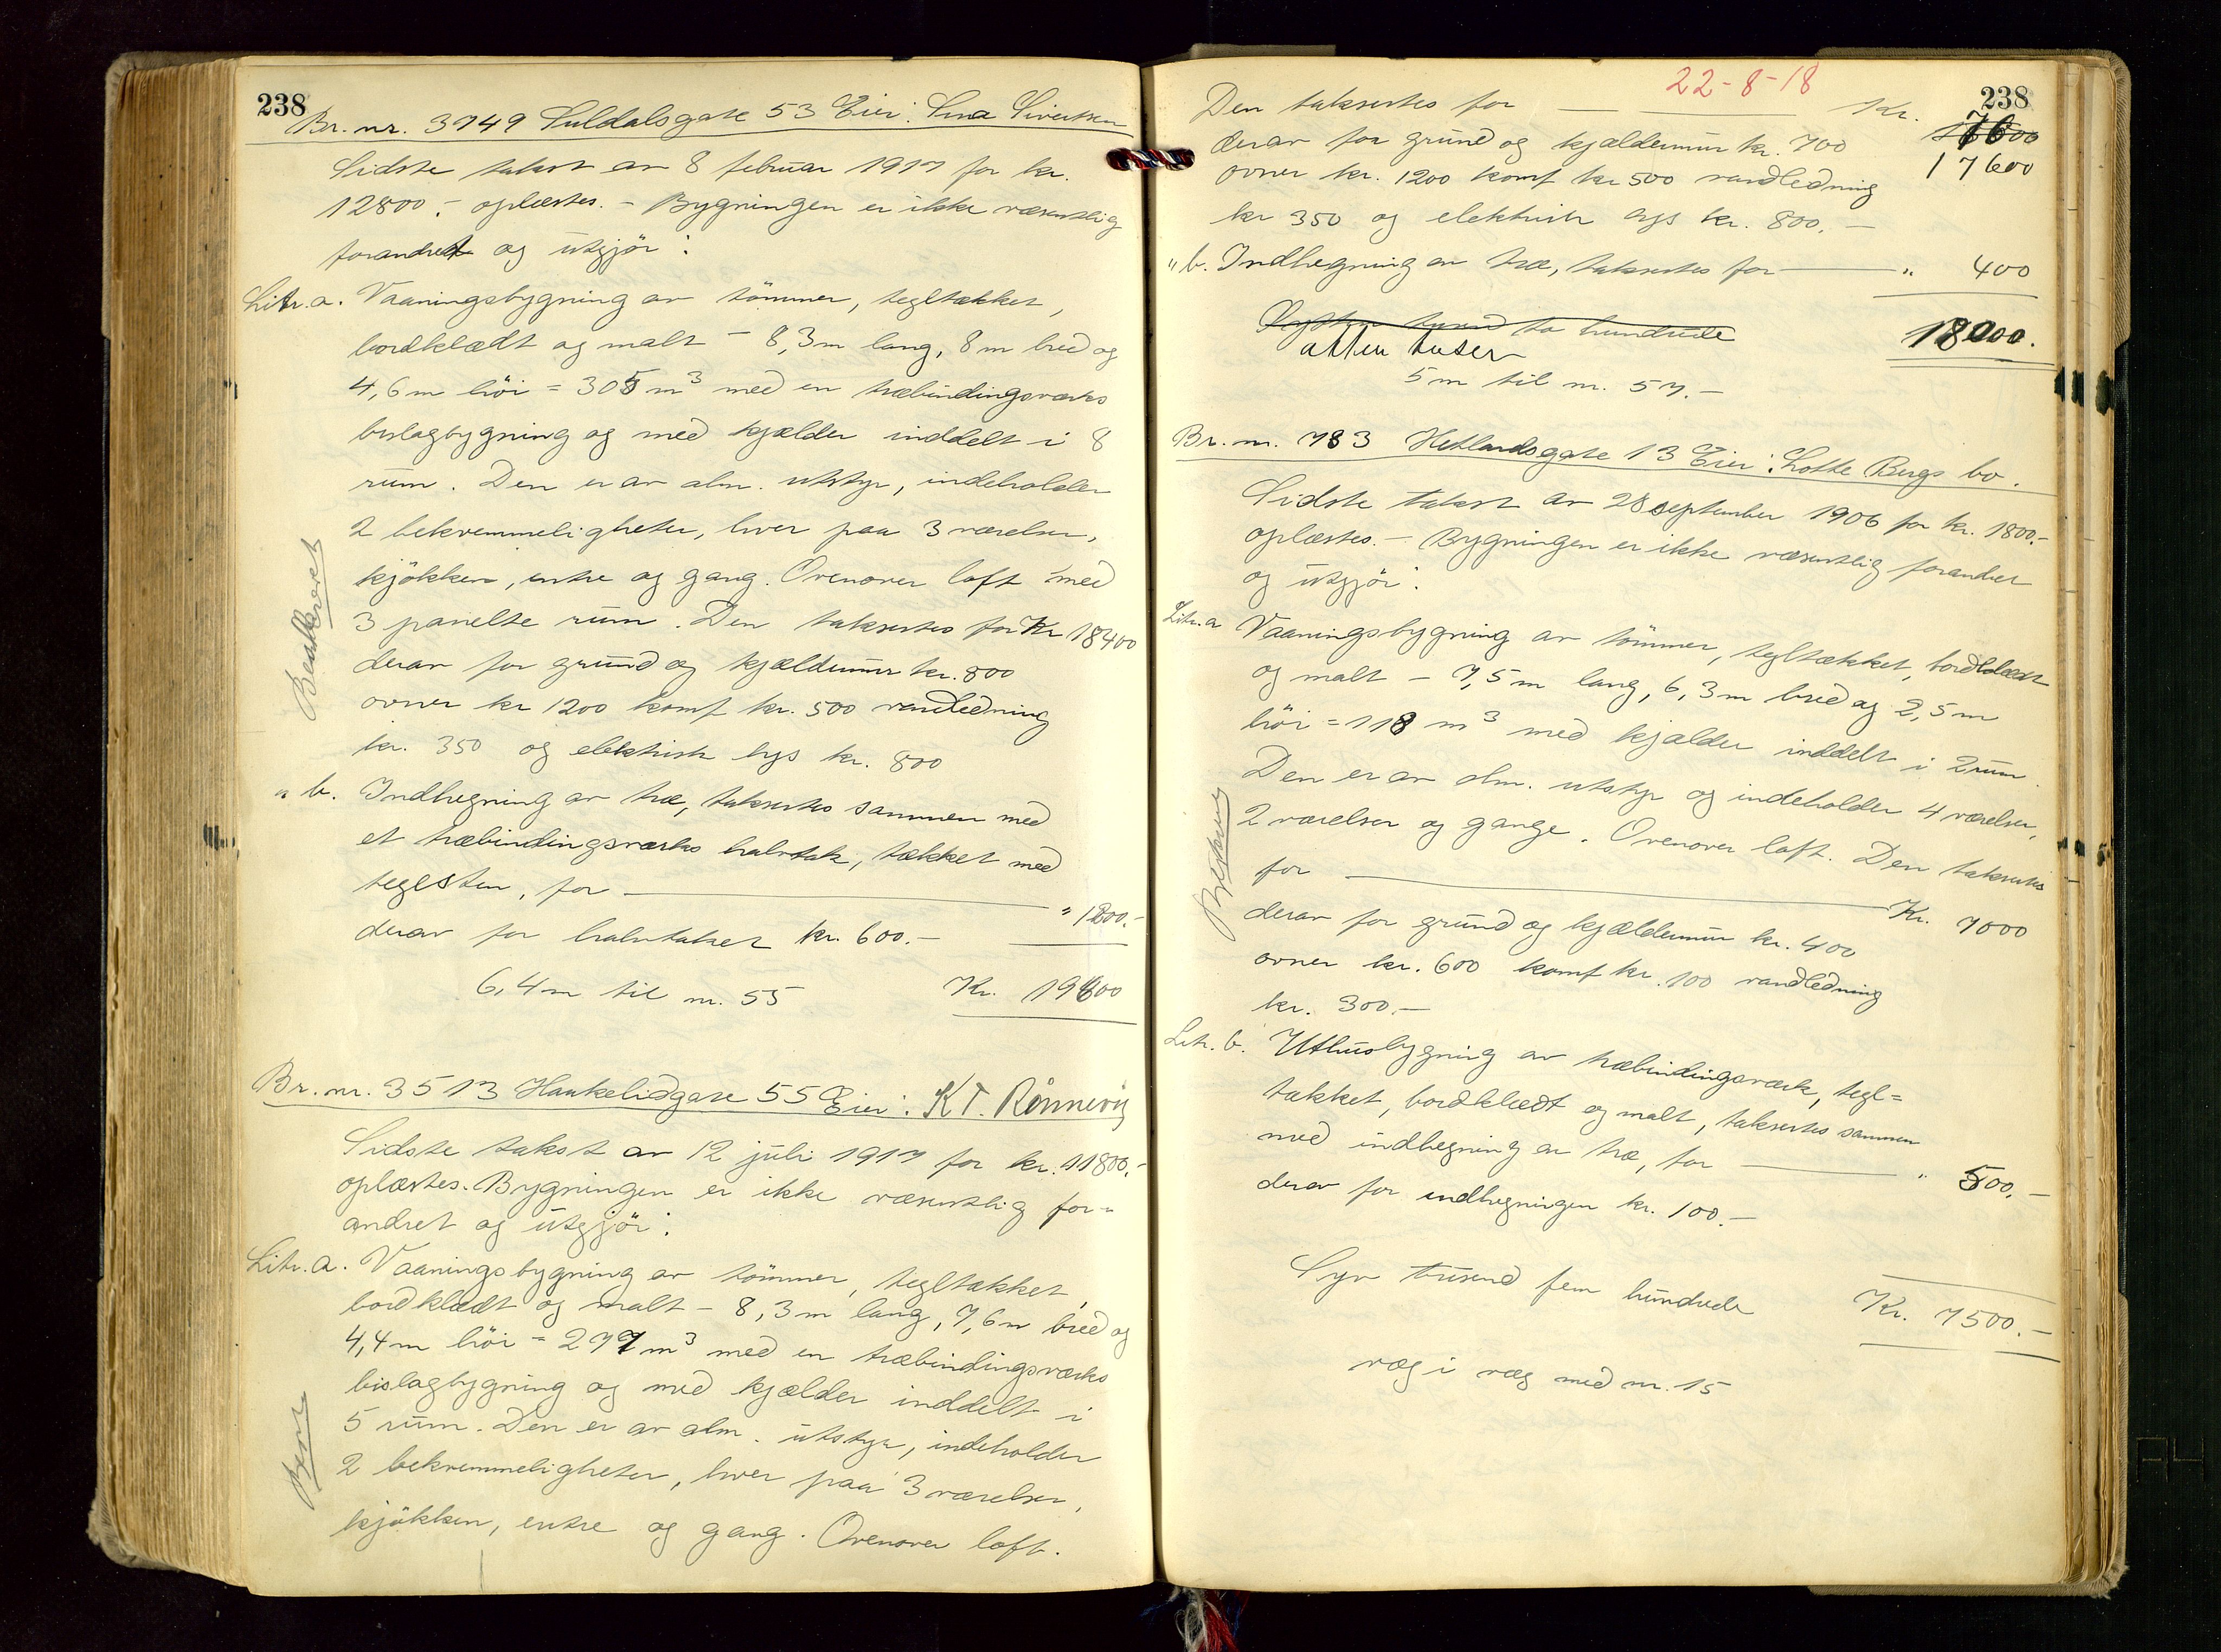 238
Br. nr. 3749 Suldalsgate 53 Eier: Sina Sivertsen
Sidste takst av 8 februar 1917 for kr.
12800.- oplæstes. - Bygningen er ikke væsentlig
forandret og utgjör:
Litr. a. Vaaningsbygning av tömmer, tegltækket,
bordklædt og malt - 8,3 m lang, 8 m bred og
4,6 m höi = 305 m³ med en træbindingsverks
bislagbygning og med kjælder inddelt i 8
rum. Den er av alm. utstyr, indeholder
2 bekvemmeligheter, hver paa 3 værelser,
kjökken, entre og gang. Ovenover loft med
3 panelte rum. Den taksertes for Kr 18400
derav for grund og kjældermur kr. 800
ovner kr 1200 komf kr. 500 vandledning
kr. 350 og elektrisk lys kr. 800
" b. Indhegning av træ, taksertes sammen med
et træbindingsverks halvtak, tækket med
teglsten, for " 1200.-
derav for halvtaket kr. 600.-
6,4 m til nr. 55 Kr. 19600
Br. nr. 3513 Haukelidgate 55 Eier: K T. Rönnevig
Sidste takst av 12 juli 1917 for kr. 11800.-
oplæstes. Bygningen er ikke væsentlig for=
andret og utgjör:
Litr. a. Vaaningsbygning av tömmer, tegltækket,
bordklædt og malt - 8,3 m lang, 7,6 m bred og
4,4 m höi = 277 m³ med en træbindingsverks
bislagbygning og med kjælder inddelt i
5 rum. Den er av alm. utstyr, indeholder
2 bekvemmeligheter, hver paa 3 værelser,
kjökken, entre og gang. Ovenover loft.
22-8-18
238
Den taksertes for Kr.
17600
derav for grund og kjældermur kr. 700
ovner kr. 1200 komf kr 500 vandledning
kr 350 og elektrisk lys kr. 800.-
" b. Indhegning av træ, taksertes for " 400
to hundrede
atten tusen 18000.
5 m til nr. 57.-
Br. nr. 783 Hetlandsgate 13 Eier: Lotte Bergs bo.
Sidste takst av 28 september 1906 for kr. 1800.-
oplæstes. - Bygningen er ikke væsentlig forandret
og utgjör:
Litr. a Vaaningsbygning av tömmer, tegltækket, bordklædt
og malt - 7,5 m lang, 6,3 m bred og 2,5 m
höi = 118 m³ med kjælder inddelt i 2 rum
Den er av alm. utstyr og indeholder 4 værelser,
2 værelser og gange. Ovenover loft. Den taksertes
for Kr. 7000
derav for grund og kjældermur kr. 400
ovner kr. 600 komf kr. 100 vandledning
kr. 300.-
Litr. b. Uthusbygning av træbindingsverk, tegl=
tækket, bordklædt og malt, taksertes sammen
med indhegning av træ, for " 500.-
derav for indhegningen kr. 100.-
Syv tusend fem hundrede Kr. 7500.-
væg i væg med nr. 15